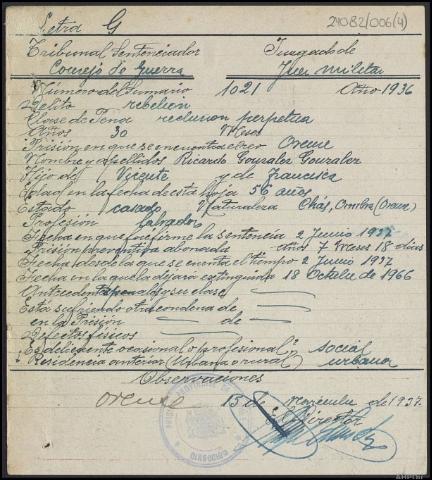 Letra G
24082/006(4)
Tribunal Sentenciador Juzgado de
Consejo de Guerra Juez militar
Número del sumario 1021 Año 1936
Delito rebelion
Clase de Pena reclusion perpetua
Años 30 Meses
Prisión en que se encuentra el reo Orense
Nombre y apellidos Ricardo Gonzalez Gonzalez
Hijo de Vicente y de Francisca
Edad en la fecha de esta hoja 56 años
Estado casado Naturaleza Chás, Oimbra (Orense)
Profesión labrador
Fecha en que fué firme la sentencia 2 Junio 1937
Prisión preventiva abonada años 7 meses 18 días
Fecha desde la que se cuenta el tiempo 2 Junio 1937
Fecha en la que la dejará extinguida 18 Octubre de 1966
Antecedentes penales y su clase
Está sufriendo otra condena de
en la Prisión de
Defectos físicos
Es delincente ocasional o profesional? social
Residencia anterior (Urbana o rural) urbana
Observaciones
Orense 13 de Noviembre de 1937
El Director